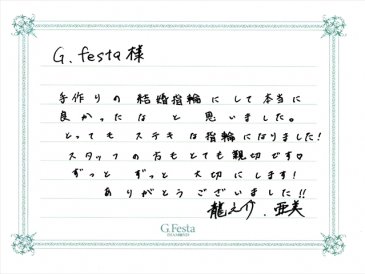 G.festa様
手作りの結婚指輪にして本当に
良かったなと思いました。
とってもステキな指輪になりました!
スタッフの方もとても親切です♡
ずっとずっと大切にします!
ありがとうございました!!
龍之介.亜美
G.Festa